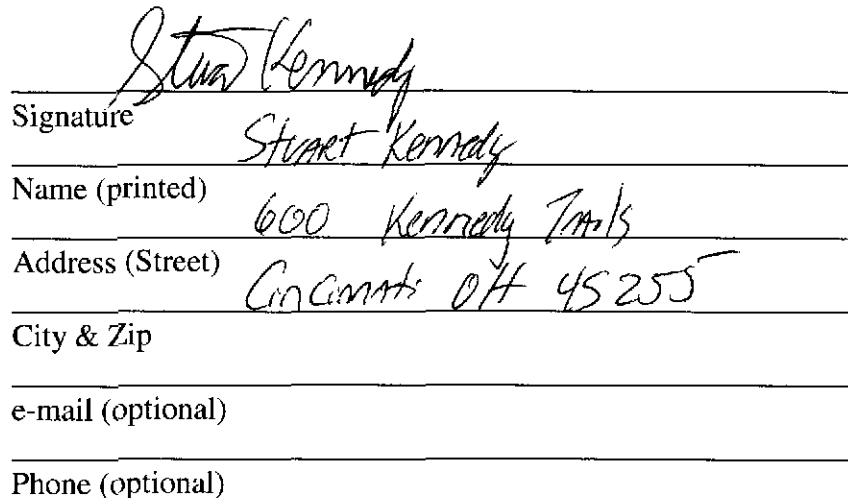 Stuart Kennedy
Signature
Stuart Kennedy
Name (printed)
600 Kennedy Trails
Address (Street)
Cincinnati OH 45255
City & Zip
e-mail (optional)
Phone (optional)